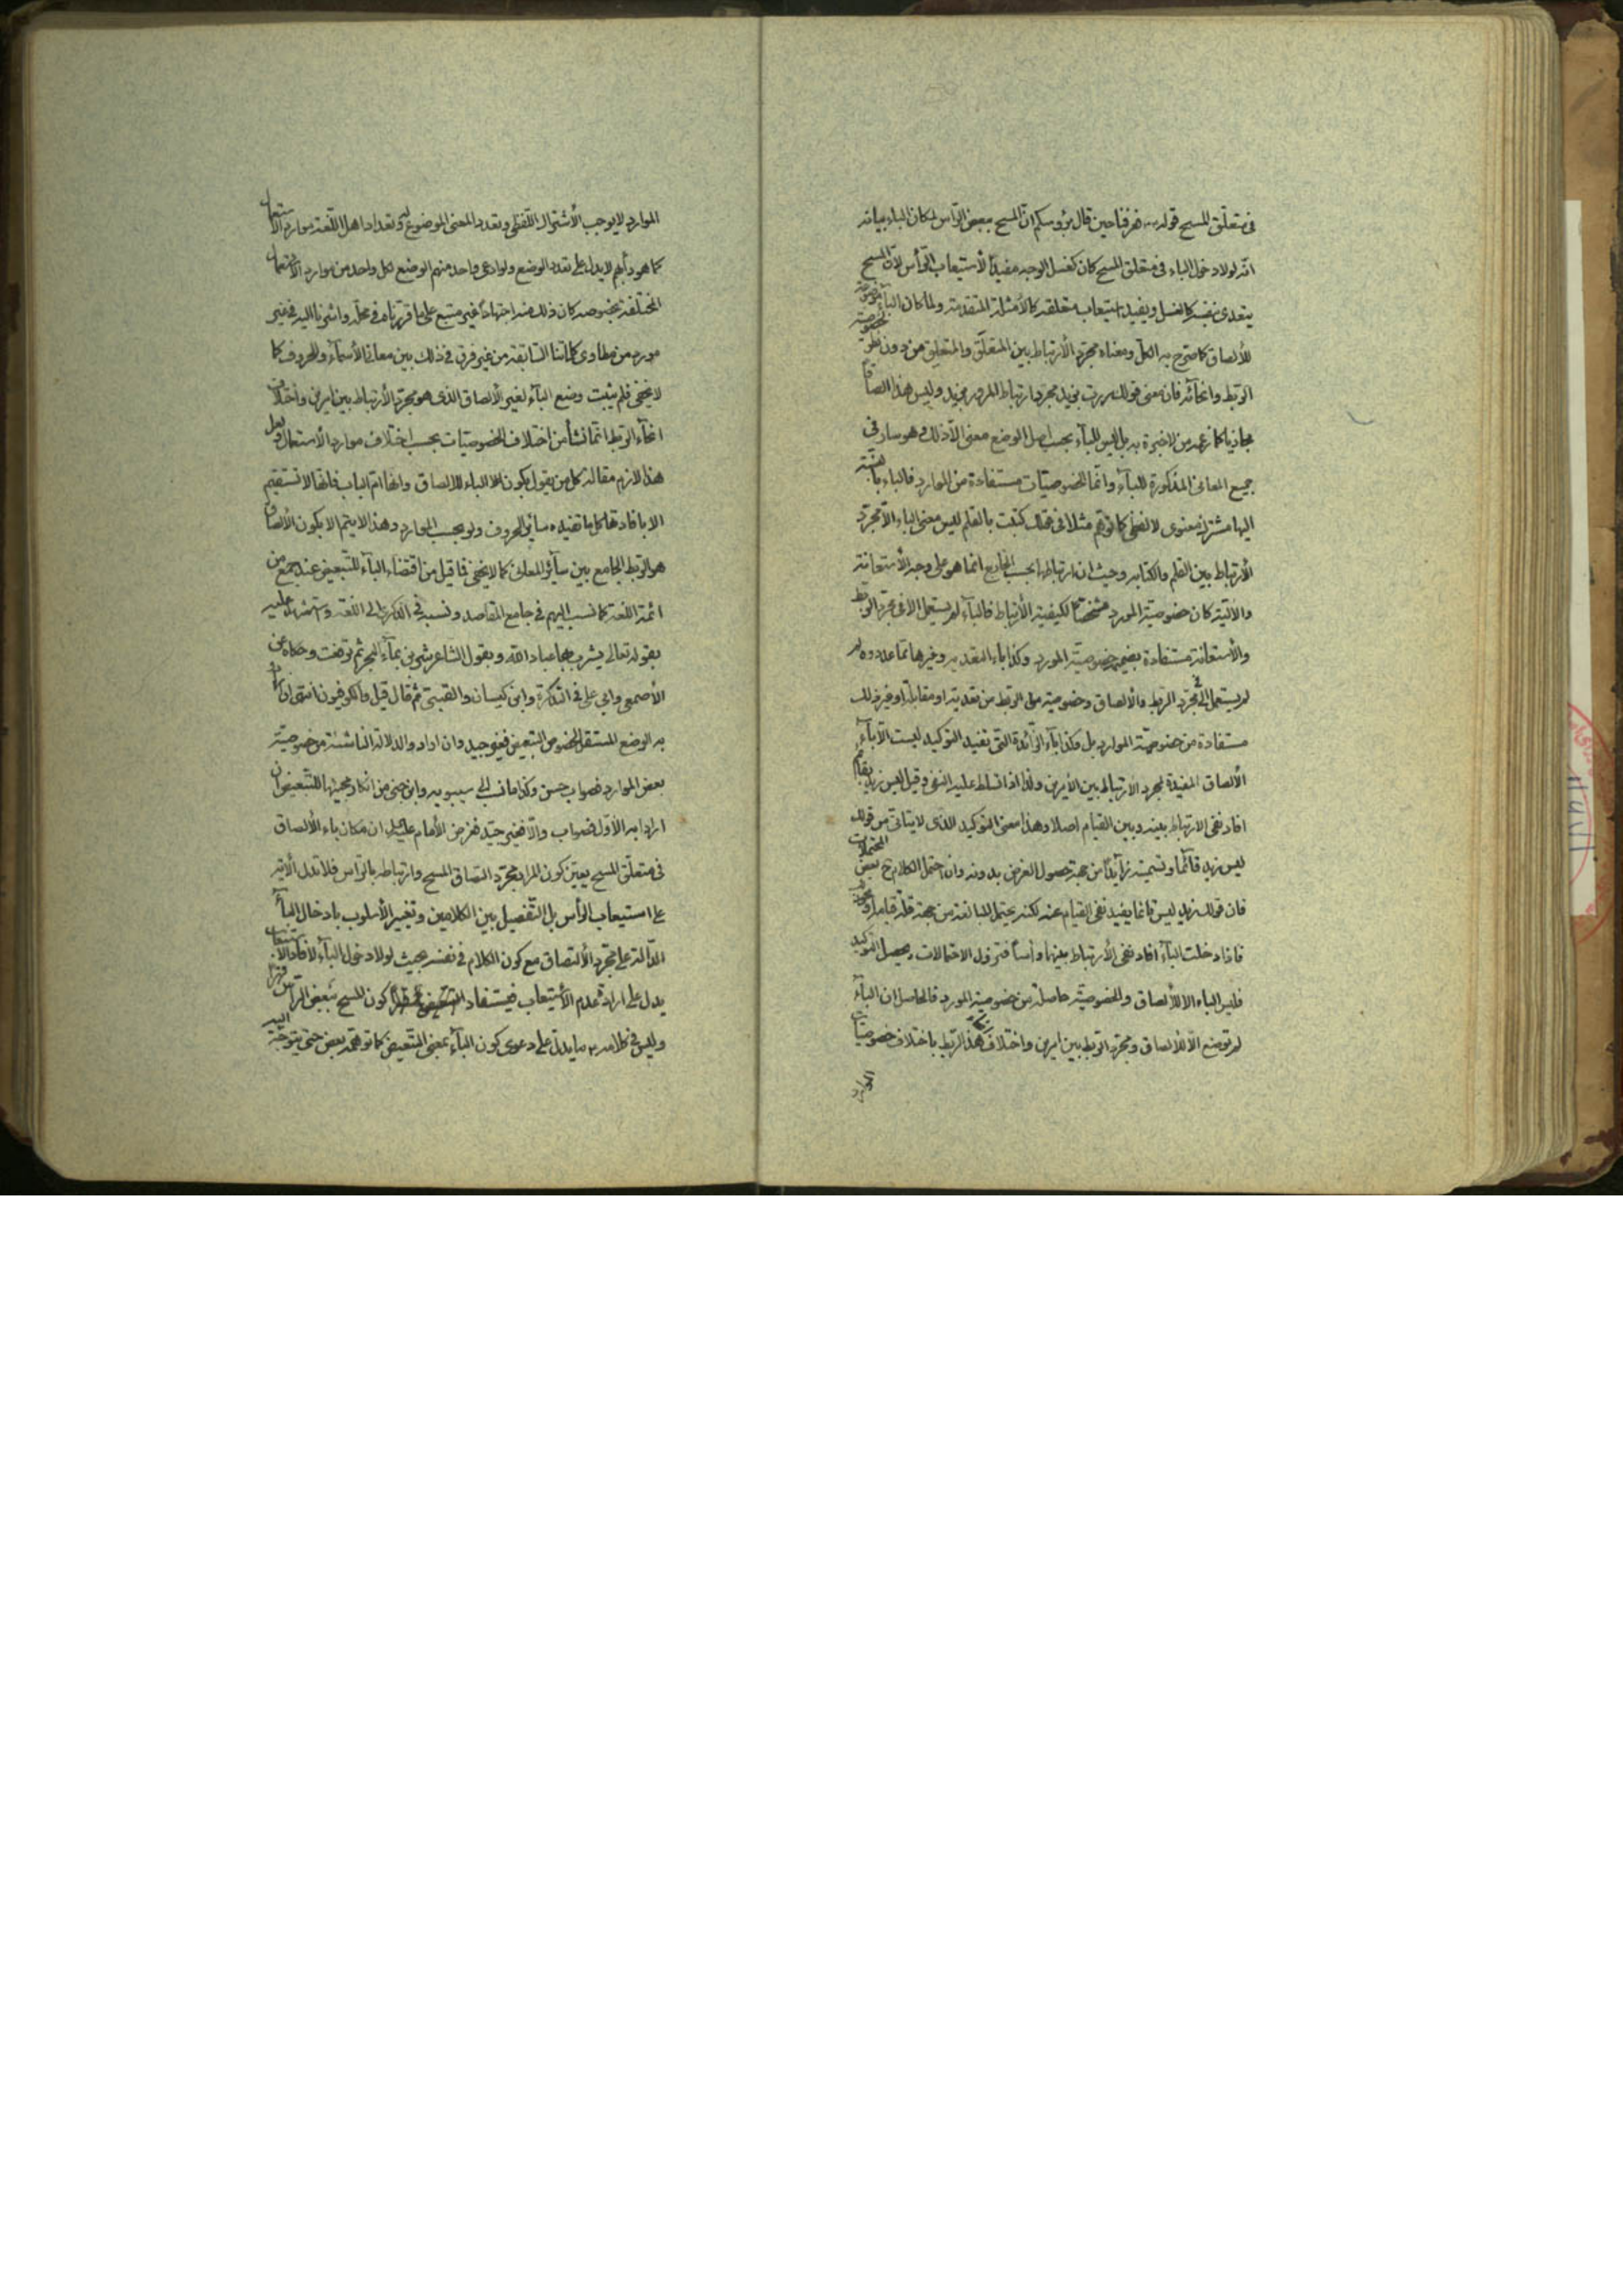 في متعلّق المسح قوله فعرفنا حين قال برؤوسكم انّ المسح ببعض الرّأس لمكان الباء بيانه
انّه لولا دخول الباء في متعلق المسح كان كغسل الوجه مفيداً لأستيعاب الرّأس لانّ المسح
يتعدى بنفسه كالغسل ويفيد استيعاب متعلقه كالأمثلة المتقدمة ولما كان الباء موضوعة
للألصاق كما صرّح به الكلّ ومعناه مجرّد الأرتباط بين المتعلّق والمتعلِّق من دون نظر لخصوصيّة
الرّبط وانحائه فانّ معنى قولك مررت بزيد مجرد ارتباط المرور بزيد وليس هذا الصاقاً
مجازيّا كما زعمه من لا خبرة به بل ليس للباء بحسب اصل الوضع معنى الّا ذلك وهو سار في
جميع المعاني المذكورة للباء وانّما الخصوصيّات مستفادة من الموارد فالباء بالنسبة
اليها مشترك معنوى لا لفظي كما توهّم مثلا في قولك كتبت بالقلم ليس معنى الباء الّا مجرّد
الأرتباط بين القلم والكتابه وحيث ان ارتباطها بحسب الخارج انما هو على وجه الأستعانة
والآليّة كان خصوصيّة المورد مشخّصاً لكيفية الأرتباط فالباء لم يستعمل الّا في مجرّد الربط
والأستعانة مستفادة بضميمة خصوصيّة المورد وكذا باء التعديه وغيرها ممّا عدّدوه
لم يستعمل الّا في مجرّد الربط والألصاق وخصوصية الربط من تعدية او مقابلة او غير ذلك
مستفادة من خصوصيّة الموارد بل وكذا باء الزّائدة التى تفيد التوكيد ليست الّا باء
الألصاق المفيدة لمجرد الارتباط بين الأمرين ولذا اذا تسلط عليه النفى وقيل ليس زيد بقائم
افاد نفى الارتباط بينه وبين القيام اصلا وهذا معنى التوكيد الذى لا يتاتى من قولك
ليس زيد قائماً وتسميته زايداً من جهة حصول الغرض بدونه وان احتمل الكلام ح بعض المحتملات
فان قولك زيد ليس قائما يفيد نفى القيام عنه لكنه يحتمل المبالغة من جهة قلّة قيامه
فاذا دخلت الباء افاد نفى الأرتباط بينهما رأساً فتزول الاحتمالات ويحصل التوكيد
فليس الباء الا للألصاق والخصوصيّة حاصلة من خصوصية المورد فالحاصل ان الباء
لم توضع الّا للألصاق ومجرّد الربط بين امرين واختلاف هذا الربط باختلاف خصوصيّات
الموارد
الموارد لا يوجب الأشتراك اللّفظى وتعدد المعنى الموضوع له وتعداد اهل اللّغة موارد الاستعمال
كما هو دأبهم لا يدل على تعدد الوضع ولو ادعى واحد منهم الوضع لكل واحد من موارد الاستعمال
المختلفة بخصوصه كان ذلك منه اجتهاداً غير متبع على ما قرّرناه في محلّه واشرنا اليه في غير
مورد من مطاوى كلماتنا السّابقة من غير فرق في ذلك بين معاني الأسماء والحروف كما
لا يخفى فلم يثبت وضع الباء لغير الألصاق الذى هو مجرّد الأرتباط بين امرين واختلاف
انحاء الرّبط انّما نشأ من اختلاف الخصوصيّات بحسب اختلاف موارد الأستعمال ولعل
هذا لازم مقالة كل من يقول بكون الباء للالصاق وانها امّ الباب فانها لا تستقيم
الا بافادتها كل ما تفيده سائر الحروف ولو بحسب الموارد وهذا لا يتم الا بكون الألصاق
هو الرّبط الجامع بين سائر المعانى كما لا يخفى فما قيل من اقتضاء الباء للتّبعيض عند جمع من
ائمة اللغة كما نسب اليهم في جامع المقاصد ونسبه في الذكرى الى اللغة واستشهد عليه
بقوله تعالى يشرب بها عباد الله وبقول الشاعر شربن بماء البحر ثم ترفعت وحكاه عن
الأصمعى وابى على في التذكرة وابن كيسان والقتبى ثم قال قيل والكوفيون انتهى ان ارادوا
به الوضع المستقل لخصوص التبعيض فغير جيد وان اراد والدلالة الناشئة من خصوصيّة
بعض الموارد فصواب حسن وكذا ما نسب الى سيبويه وابن جنى من انكار مجيئها للتّبعيض ان
ارادا به الأوّل فصواب والّا فغير جيّد فغرض الأمام عليه السلام ان مكان باء الألصاق
في متعلّق المسح يعيّن كون المراد مجرّد التصاق المسح وارتباطه بالرّأس فلا تدل الآية
على استيعاب الرأس بل التّفصيل بين الكلامين وتغيير الأسلوب بادخال الباء
الدّالة على مجرد الألتصاق مع كون الكلام في نفسه بحيث لولا دخول الباء لأفاد الاستيعاب
يدل على ارادة عدم الأستيعاب فيستفاد كون المسح ببعض الرأس
وليس في كلامه ما يدلّ على دعوى كون الباء بمعنى التّبعيض كما توهّمه بعض حتى يتوجّه اليه